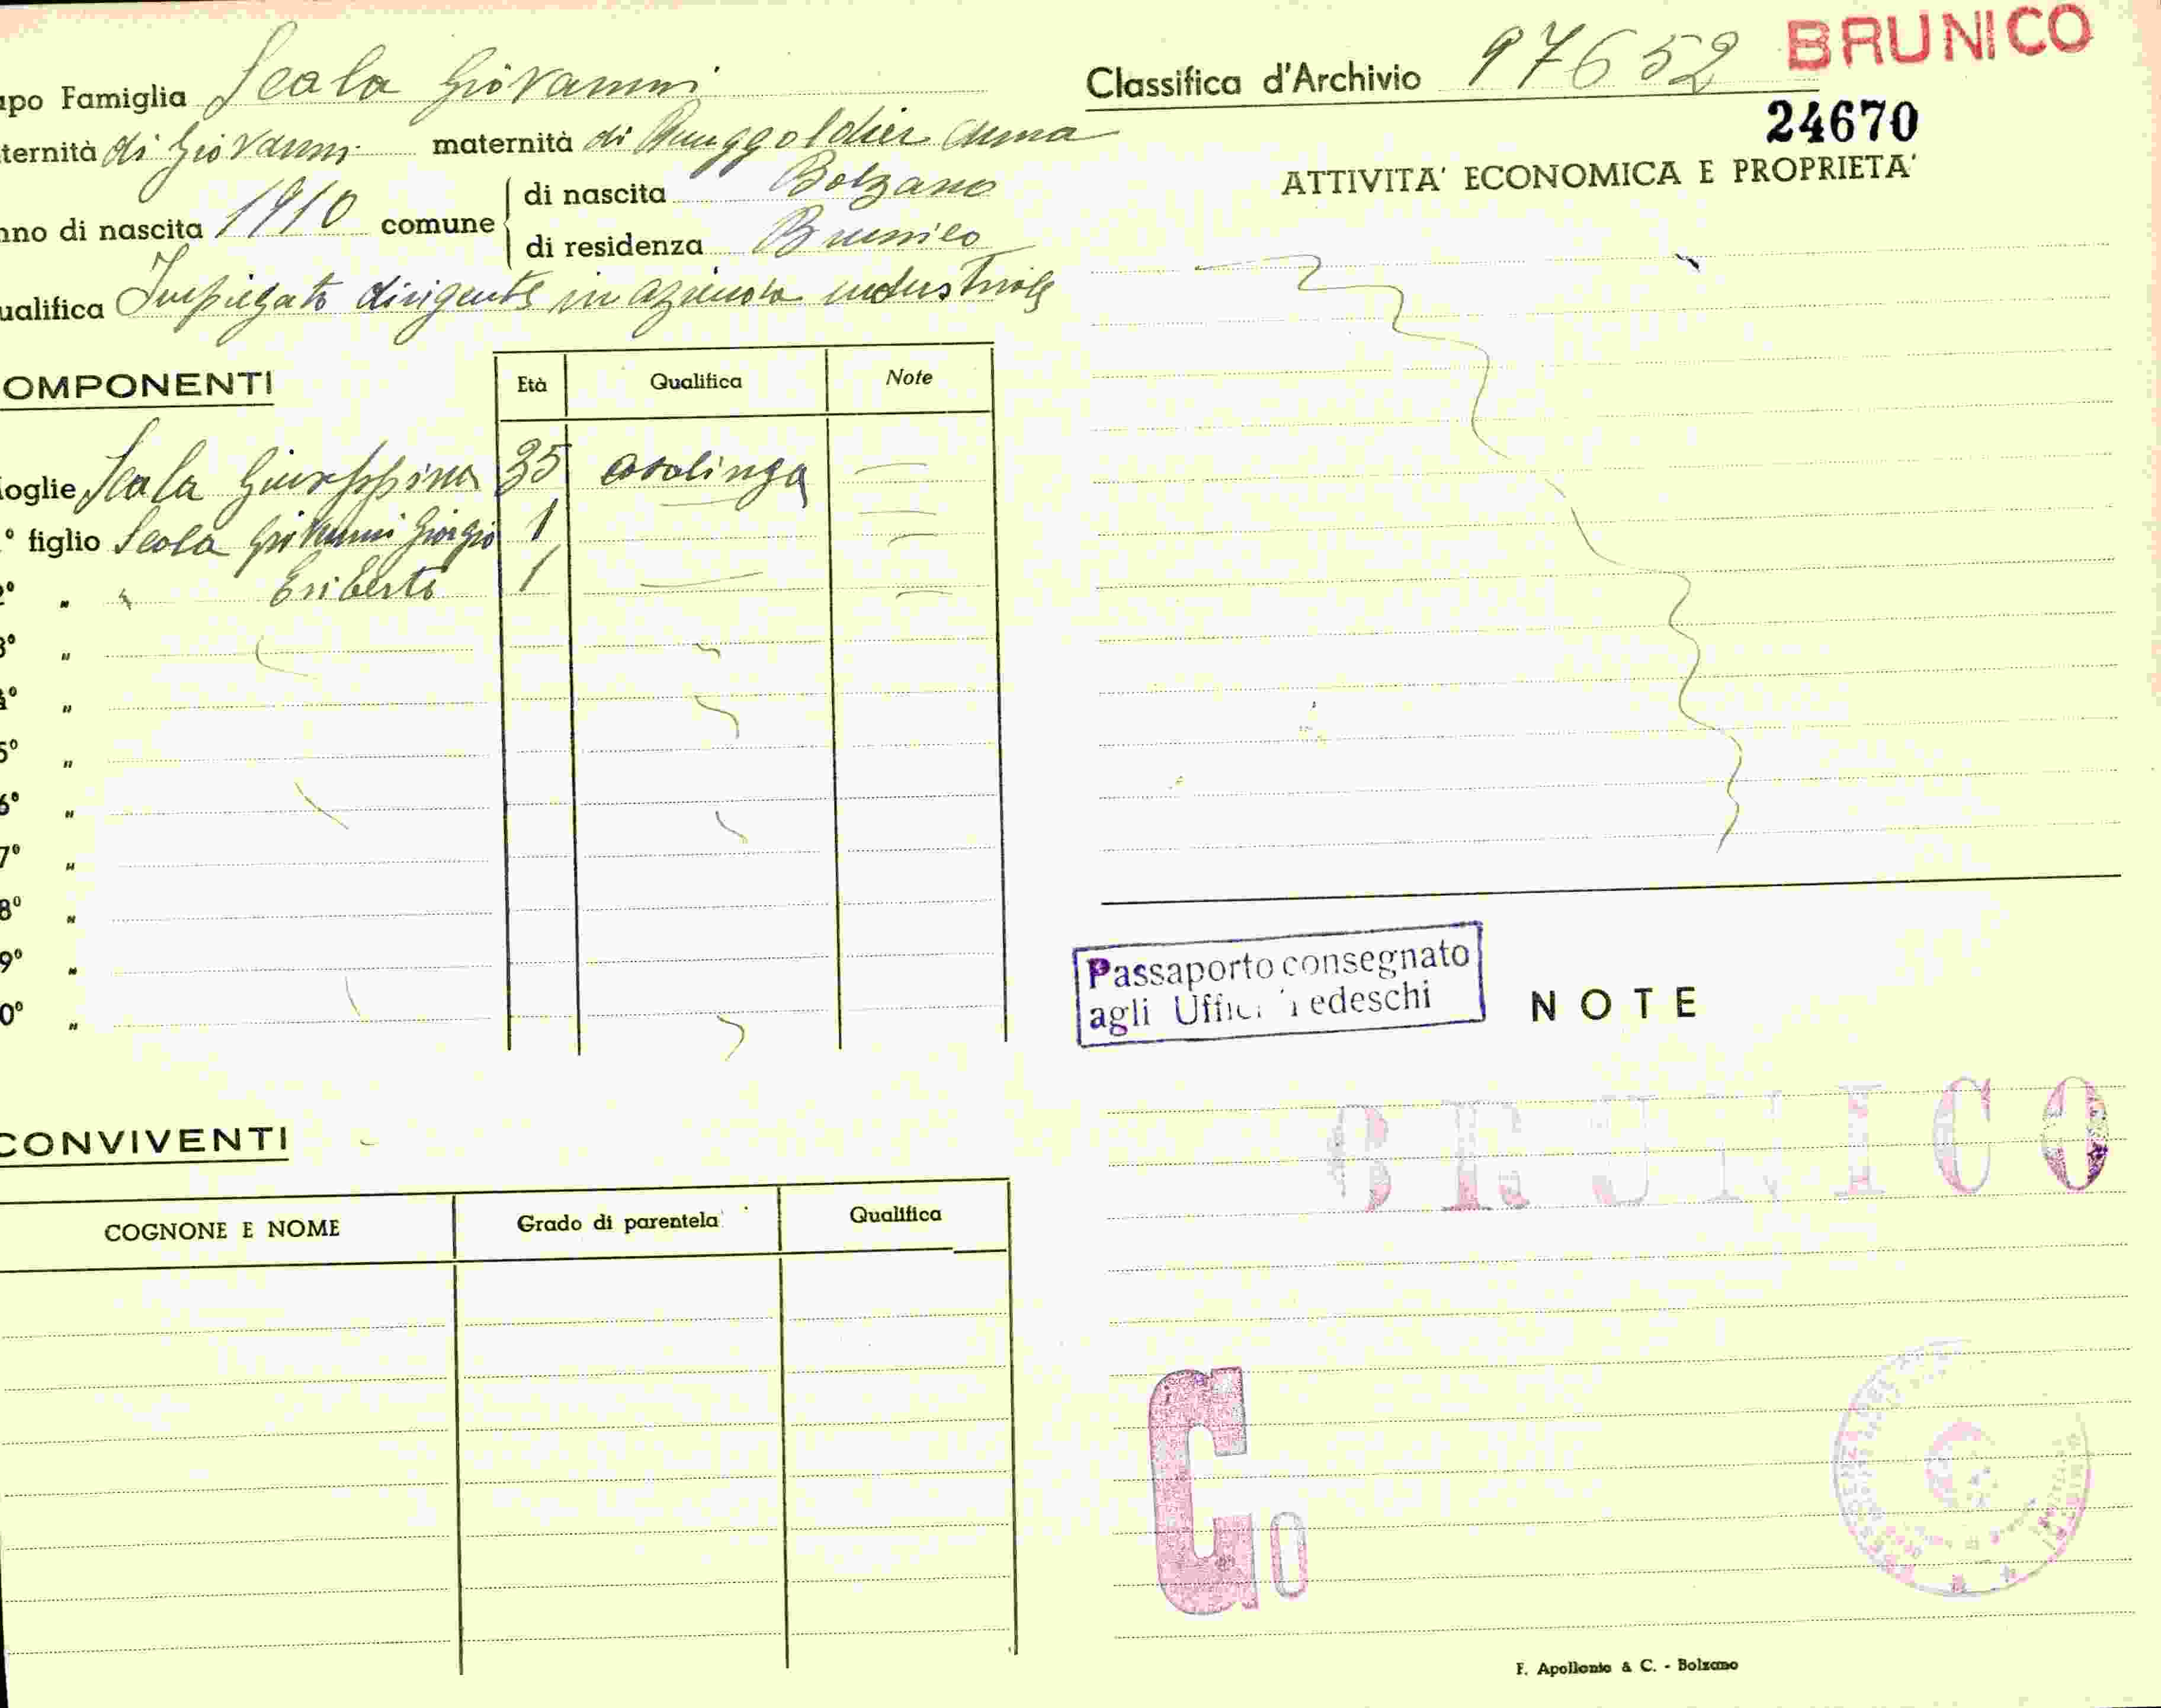 apo Famiglia Scala Giovanni
ternità di Giovanni maternità di Runggoldier Anna
nno di nascita 1910 comune di nascita Bolzano
di residenza Brunico
ualifica Impiegato dirigente in azienda industriale
OMPONENTI Età Qualifica Note
oglie Scala Giuseppina 35 casalinga
° figlio Scala Giovanni Giorgio 1
2° " " Eriberto 1
3° "
4° "
5° "
6° "
7° "
8° "
9° "
0° "
CONVIVENTI
COGNONE E NOME Grado di parentela Qualifica
Classifica d'Archivio 97652 BRUNICO
24670
ATTIVITA' ECONOMICA E PROPRIETA'
Passaporto consegnato
agli Uffici Tedeschi
NOTE
BRUNICO
G0
F. Apollonio & C. - Bolzano